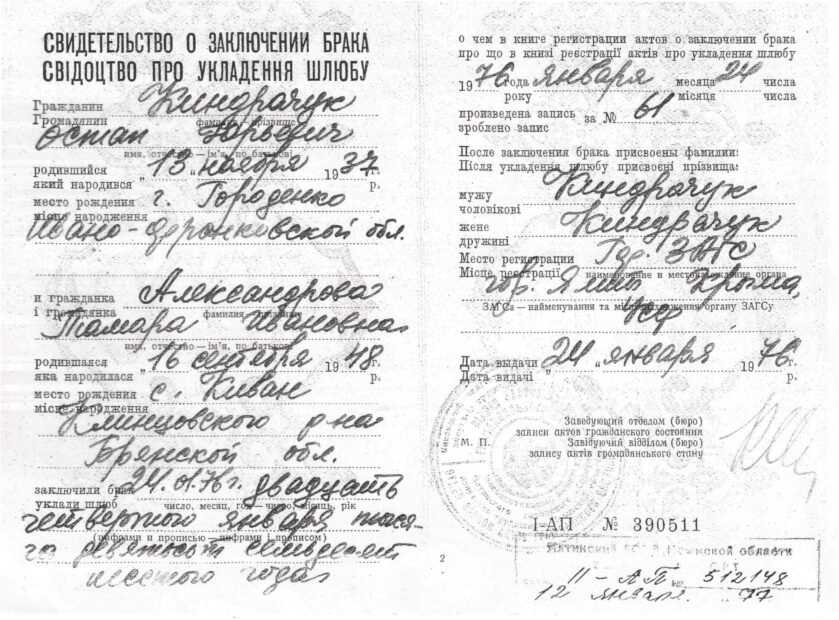 СВИДЕТЕЛЬСТВО О ЗАКЛЮЧЕНИИ БРАКА
СВІДОЦТВО ПРО УКЛАДЕННЯ ШЛЮБУ
Гражданин Киндрачук
Громадянин фамилия — прізвище
Остап Юрьевич
имя, отчество — ім'я, по батькові
родившийся „13“ ноября 1937 г.
який народився р.
место рождения г. Городенко
місце народження
Ивано-Франковской обл.
и гражданка Александрова
і громадянка фамилия — прізвище
Тамара Ивановна
имя, отчество — ім'я, по батькові
родившаяся „16 сентября 1948 г.
яка народилася р.
место рождения с. Киван
місце народження
Клинцовского р-на
Брянской обл.
заключили брак 24.01.76 г. двадцать
уклали шлюб число, месяц, год — число, місяць, рік
четвертого января тыся-
(цифрами и прописью — цифрами і прописом)
го девятьсот семьдесят
шестого года
о чем в книге регистрации актов о заключении брака
про що в книзі реєстрації актів про укладення шлюбу
1976 года января месяца 24 числа
року місяця числа
произведена запись за № 61
зроблено запис
После заключения брака присвоены фамилии:
Після укладення шлюбу присвоєні прізвища:
мужу Киндрачук
чоловікові
жене Киндрачук
дружині
Место регистрации Гор. ЗАГС
Місце реєстрації наименование и местонахождение органа
гор. Ялты Крымс,
ЗАГСа — найменування та місцезнаходження органу ЗАГСу
Дата выдачи „24 „ января 1976 г.
Дата видачі р.
Заведующий отделом (бюро)
записи актов гражданского состояния
М. П. Завідуючий відділом (бюро)
запису актів громадянського стану
I-АП № 390511
2
Ялтинский Крымской области
II - АП № 512148
12 января 77